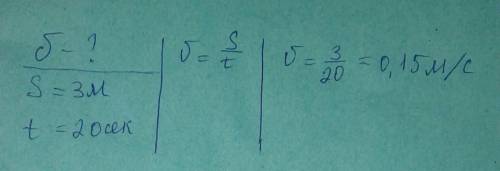 υ - ?
S = 3м
t = 20сек
υ = S/t
υ = 3/20 = 0,15м/с